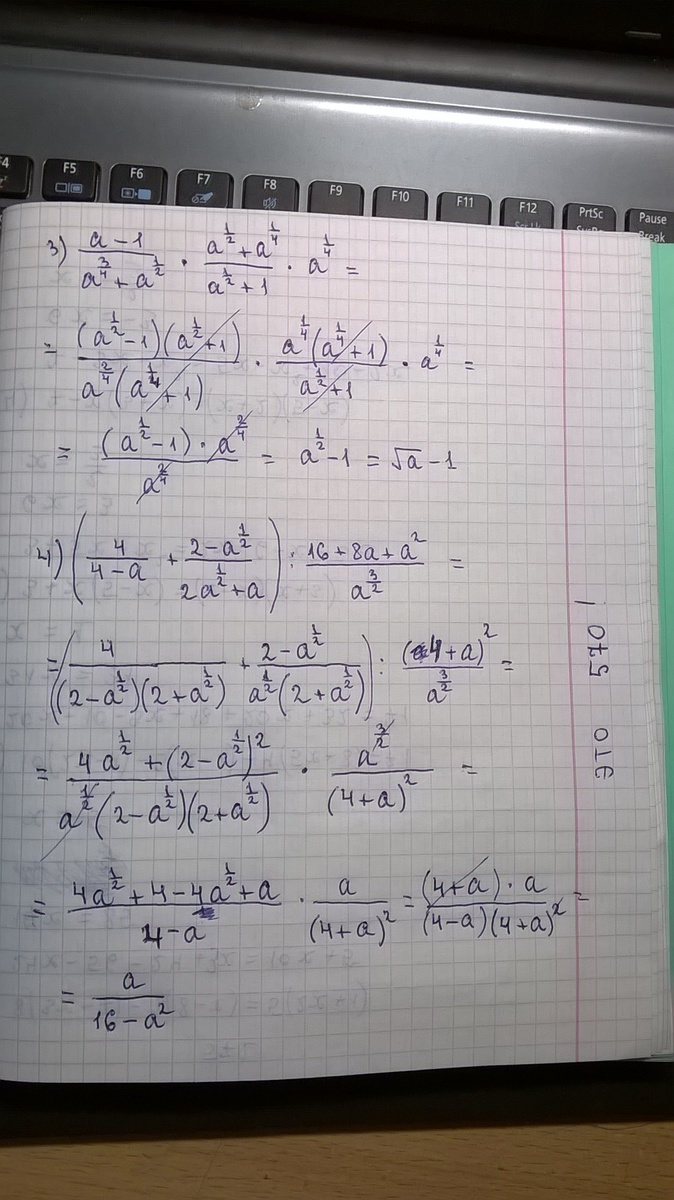 F4 F5 F6 F7 F8 F9 F10 F11 F12 PrtSc Pause
Break
3) \frac{a-1}{a^{\frac{3}{4}}+a^{\frac{1}{2}}} · \frac{a^{\frac{1}{2}}+a^{\frac{1}{4}}}{a^{\frac{1}{2}}+1} · a^{\frac{1}{4}} =
= \frac{(a^{\frac{1}{2}}-1)(a^{\frac{1}{2}}+1)}{a^{\frac{2}{4}}(a^{\frac{1}{4}}+1)} · \frac{a^{\frac{1}{4}}(a^{\frac{1}{4}}+1)}{a^{\frac{1}{2}}+1} · a^{\frac{1}{4}} =
= \frac{(a^{\frac{1}{2}}-1)·a^{\frac{2}{4}}}{a^{\frac{2}{4}}} = a^{\frac{1}{2}}-1 = √a-1
4) (\frac{4}{4-a} + \frac{2-a^{\frac{1}{2}}}{2a^{\frac{1}{2}}+a}) : \frac{16+8a+a^2}{a^{\frac{3}{2}}} =
= (\frac{4}{(2-a^{\frac{1}{2}})(2+a^{\frac{1}{2}})} + \frac{2-a^{\frac{1}{2}}}{a^{\frac{1}{2}}(2+a^{\frac{1}{2}})}) : \frac{(4+a)^2}{a^{\frac{3}{2}}} =
= \frac{4a^{\frac{1}{2}}+(2-a^{\frac{1}{2}})^2}{a^{\frac{1}{2}}(2-a^{\frac{1}{2}})(2+a^{\frac{1}{2}})} · \frac{a^{\frac{3}{2}}}{(4+a)^2} =
= \frac{4a^{\frac{1}{2}}+4-4a^{\frac{1}{2}}+a}{4-a} · \frac{a}{(4+a)^2} = \frac{(4+a)·a}{(4-a)(4+a)^2} =
= \frac{a}{16-a^2}
ЭТО 570!